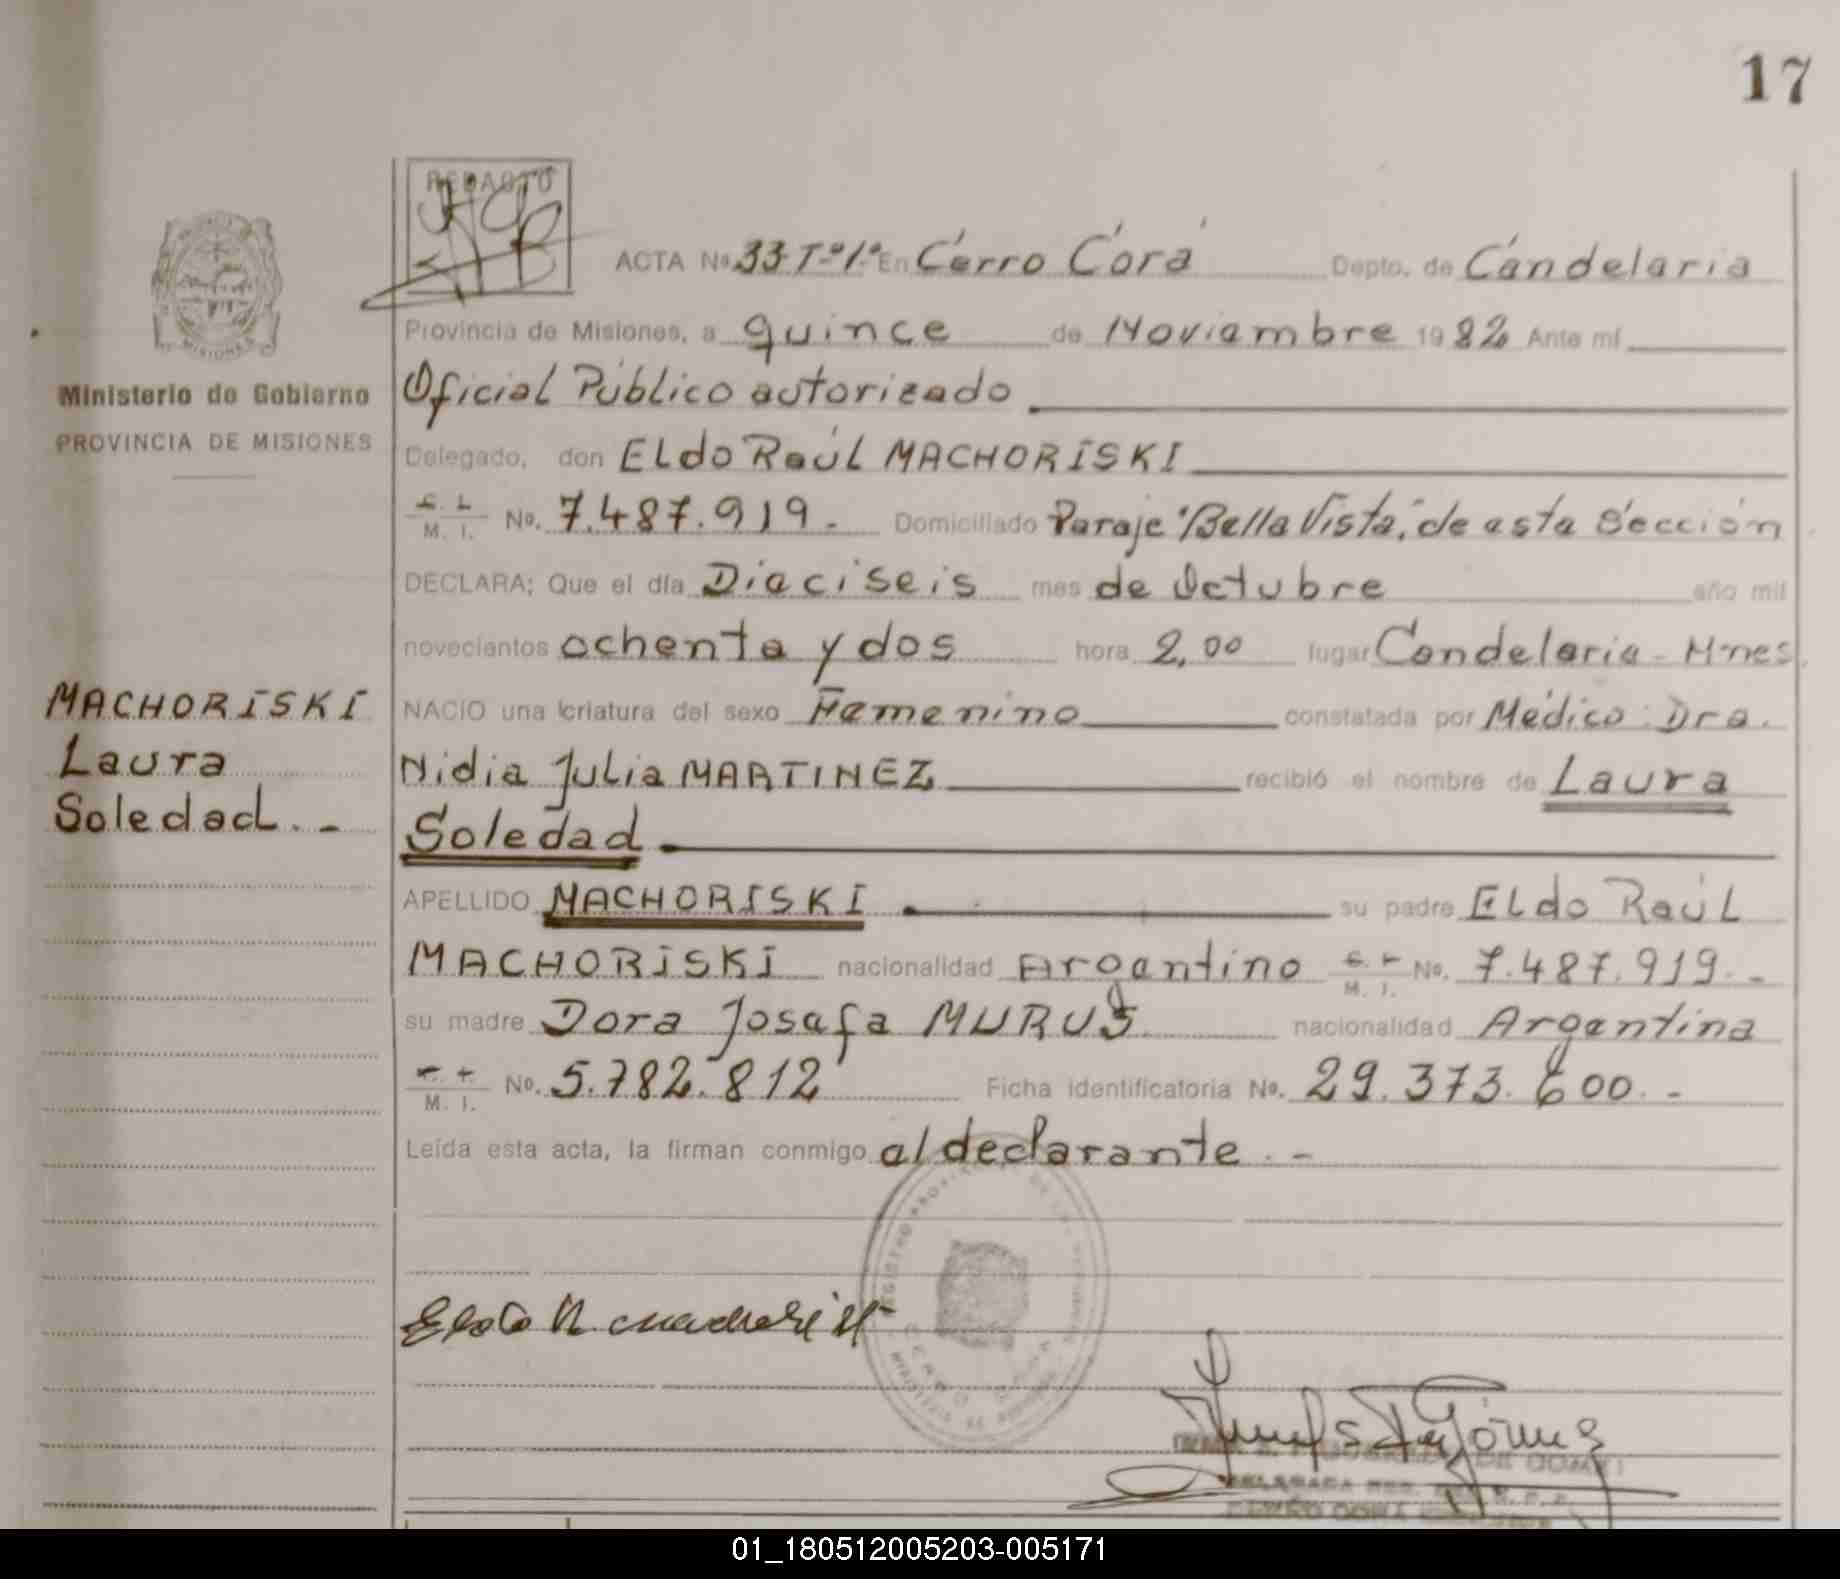 17
REDACTO
ACTA No. 33-Tº1º En Cerro Corá Depto. de Candelaria
Provincia de Misiones, a quince de Noviembre 1982 Ante mí
Oficial Público autorizado
Ministerio de Gobierno
PROVINCIA DE MISIONES
Delegado, don ELdo Raúl MACHORISKI
C. I. M. I. No. 7.487.919.- Domiciliado Paraje "Bella Vista," de esta Sección
DECLARA; Que el día Dieciseis mes de Octubre año mil
novecientos ochenta y dos hora 2,00 lugar Candelaria - M-nes.
MACHORISKI
Laura
Soledad.-
NACIO una criatura del sexo Femenino constatada por Médico: Dra.
Nidia Julia MARTINEZ recibió el nombre de Laura
Soledad
APELLIDO MACHORISKI su padre ELdo Raúl
MACHORISKI nacionalidad Argentino C. I. M. I. No. 7.487.919.-
su madre Dora Josefa MURUS nacionalidad Argentina
C. I. M. I. No. 5.782.812 Ficha identificatoria No. 29.373.600.-
Leída esta acta, la firman conmigo el declarante.-
01_180512005203-005171